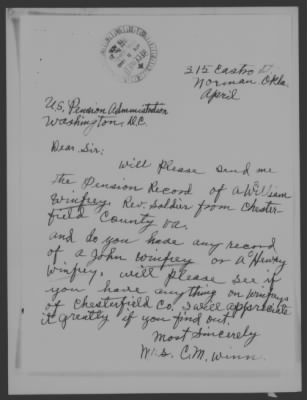 315 Castro St
Norman, Okla.
April
U.S. Pension Administration
Washington, D.C.
Dear Sir:
Will please send me
the Pension Record of a William
Winfrey, Rev. soldier from Chester-
field County Va.
and do you have any record
of a John Winfrey or A Henry
Winfrey. Will please see if
you have anything on Winfreys
of Chesterfield Co. I will appreciate
it greatly if you find out.
Most Sincerely
Mrs. C. M. Winn.